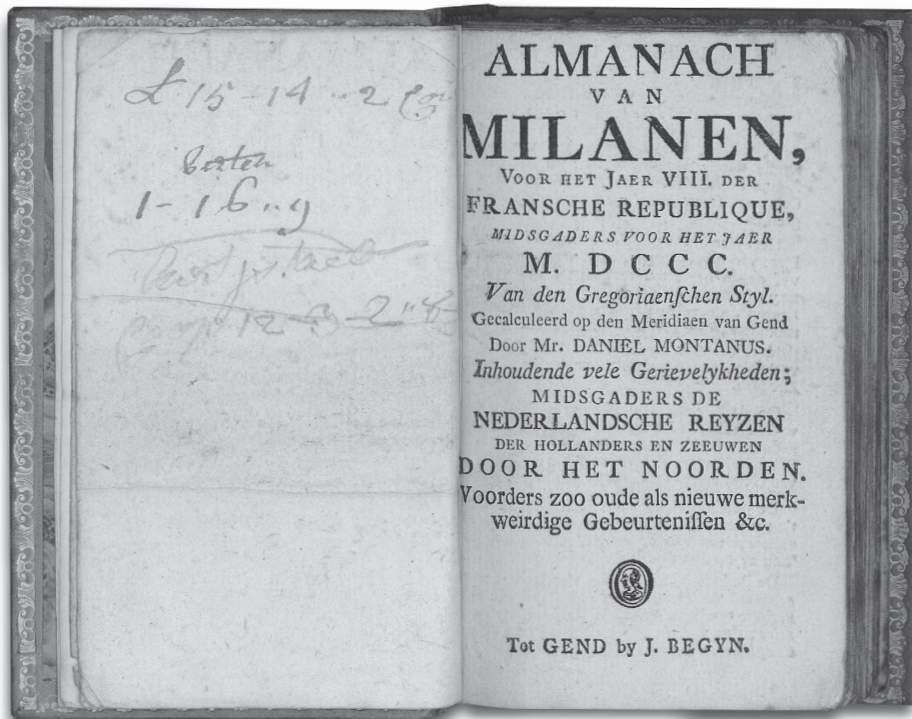 L 15 - 14 - 2
1 - 16 " 9
ALMANACH
VAN
MILANEN,
VOOR HET JAER VIII. DER
FRANSCHE REPUBLIQUE,
MIDSGADERS VOOR HET JAER
M. D C C C.
Van den Gregoriaenſchen Styl.
Gecalculeerd op den Meridiaen van Gend
Door Mr. DANIEL MONTANUS.
Inhoudende vele Gerievelykheden;
MIDSGADERS DE
NEDERLANDSCHE REYZEN
DER HOLLANDERS EN ZEEUWEN
DOOR HET NOORDEN.
Voorders zoo oude als nieuwe merk-
weirdige Gebeurteniſſen &c.
Tot GEND by J. BEGYN.